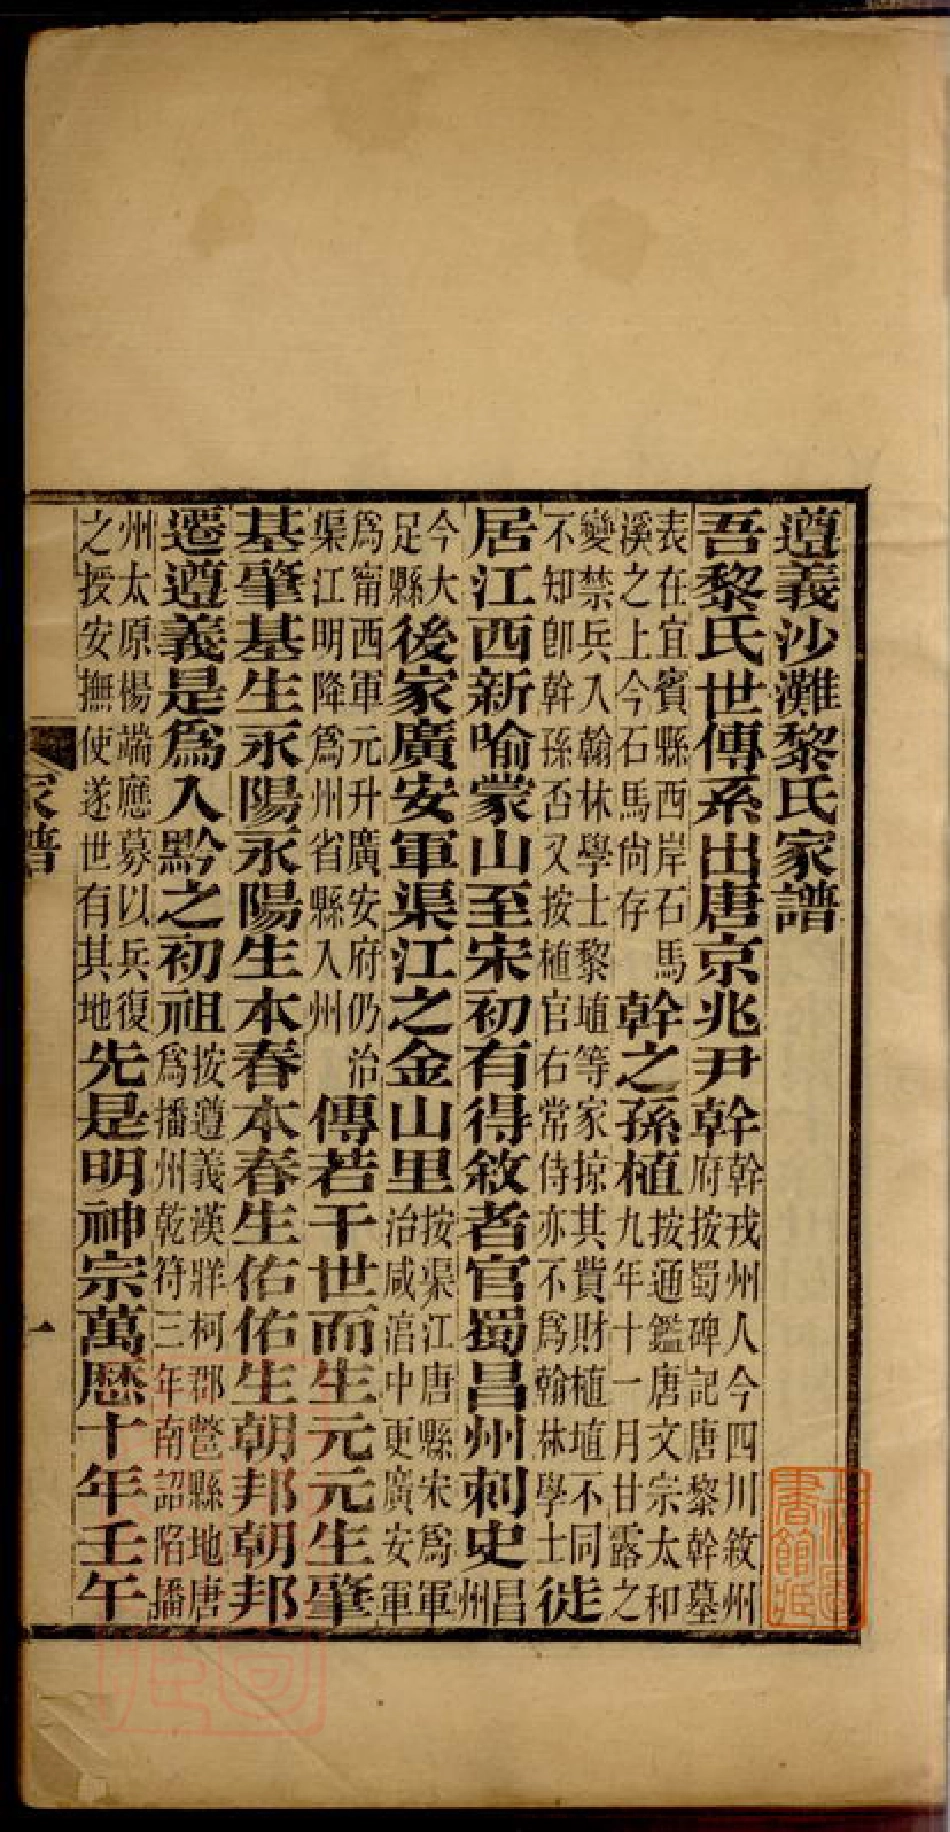 遵義沙灘黎氏家譜
吾黎氏世傳系出唐京兆尹幹
幹戎州人今四川敘州
府按蜀碑記唐黎幹墓
表在宜賓縣西岸石馬
溪之上今石馬尙存
幹之孫植
按通鑑唐文宗太和
九年十一月甘露之
變禁兵入翰林學士黎埴等家掠其貲財植埴不同
不知卽幹孫否又按植官右常侍亦不爲翰林學士
徙
居江西新喻蒙山至宋初有得敘者官蜀昌州刺史
昌
州
今大
足縣
後家廣安軍渠江之金山里
按渠江唐縣宋爲軍
治咸涫中更廣安軍
爲甯西軍元升廣安府仍治
渠江明降爲州省縣入州
傳若干世而生元元生肇
基肇基生永陽永陽生本春本春生佑佑生朝邦朝邦
遷遵義是爲入黔之初祖
按遵義漢牂柯郡鄨縣地唐
爲播州乾符三年南詔陷播
州太原楊端應募以兵復
之授安撫使遂世有其地
先是明神宗萬歷十年壬午
家譜
一